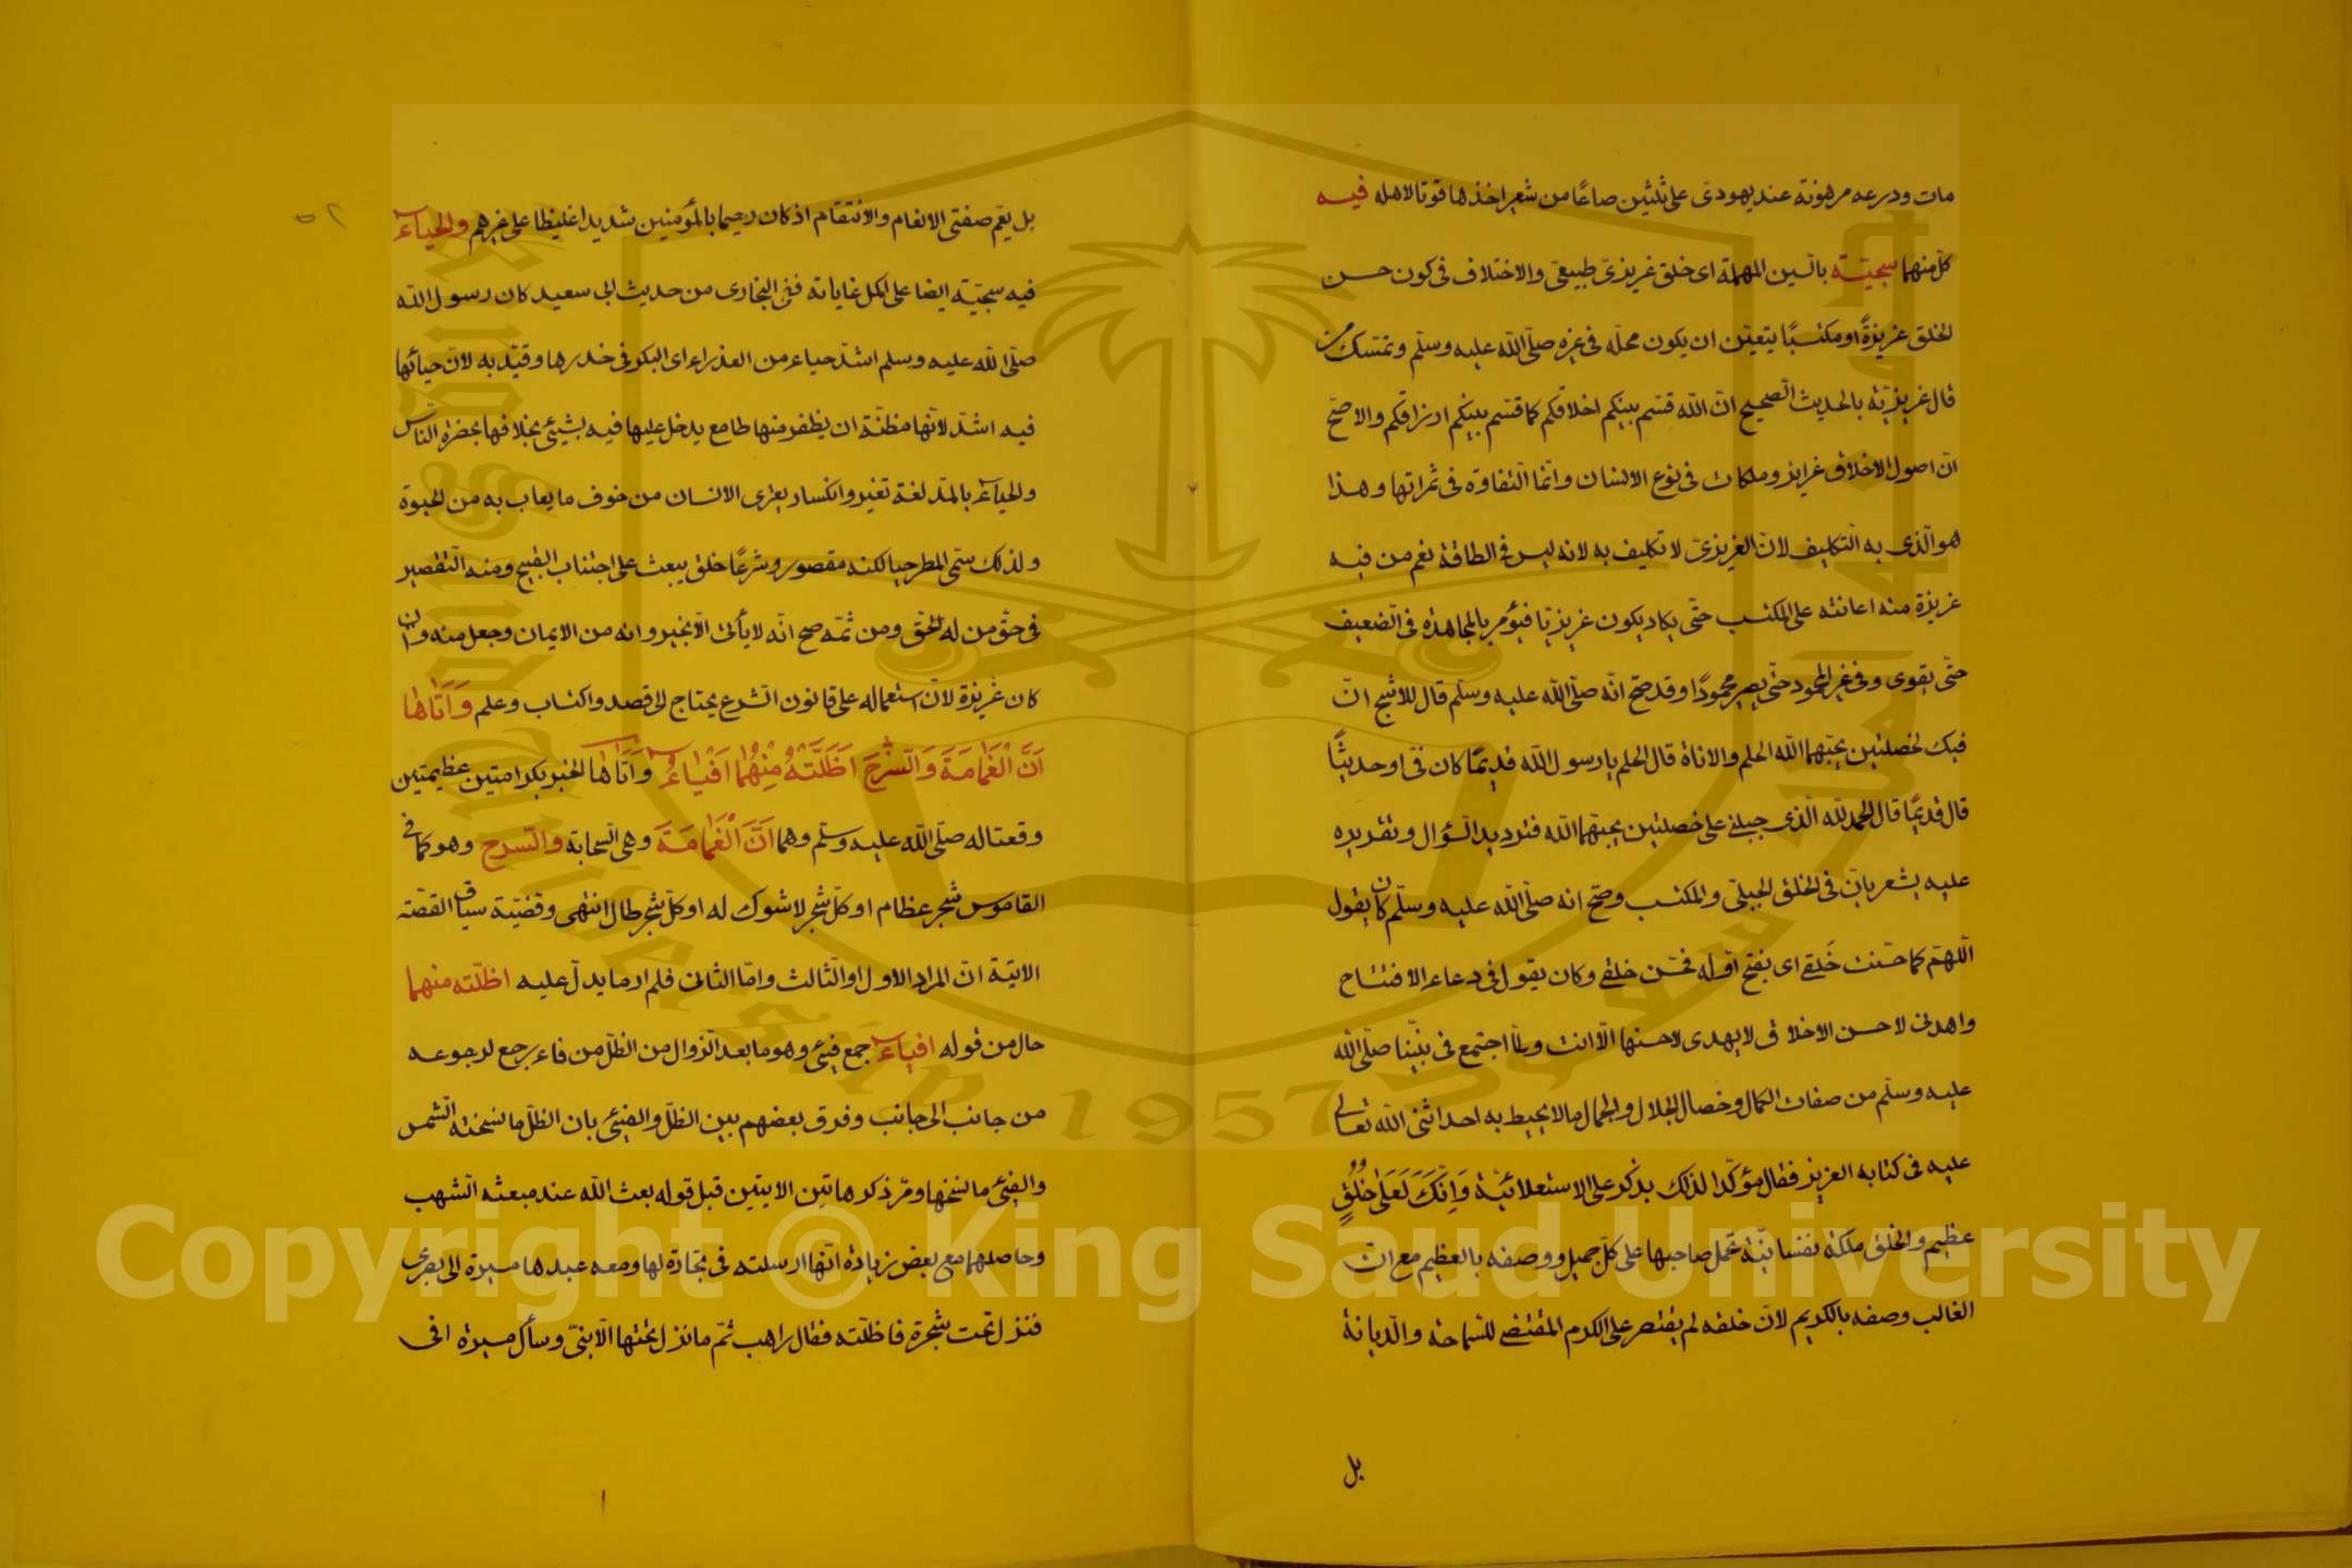 مات ودرعه مرهونة عند يهودى على ثلثين صاعًا من شعير اخذها قوتا لاهله فيه
كل منهما سجيّة بالسين المهملة اى خلق غريزى طبيعى والاختلاف فى كون حسن
الخلق غريزةً او مكتسبًا يتعين ان يكون محلّه فى غيره صلّى الله عليه وسلّم وتمسّك من
قال غريزيّة بالحديث الصحيح انّ الله قسّم بينكم اخلاقكم كما قسّم بينكم ارزاقكم والاصحّ
انّ اصول الاخلاق غرايز وملكات فى نوع الانسان وانّما التفاوة فى ثمراتها وهذا
هو الّذى به التكليف لانّ الغريزىّ لا تكليف به لانه ليس فى الطاقة نعم من فيه
غريزة منه اعانته على المكتسب حتّى يكاد يكون غريزيّا فيؤمر بالمجاهدة فى الضعيف
حتّى يقوى وفى غير المحمود حتّى يصير محمودًا وقد صحّ انّه صلّى الله عليه وسلّم قال للاشجّ انّ
فيك لخصلتين يحبّهما الله الحلم والاناة قال الحلم يا رسول الله قديمًا كان فىّ او حديثًا
قال قديمًا قال الحمد لله الّذى جبلنى على خصلتين يحبّهما الله فترديد السّؤال وتقريره
عليه يشعر بانّ فى الخلق الجبلّى والمكتسب وصحّ انه صلّى الله عليه وسلّم كان يقول
اللّهمّ كما حسّنت خَلقى اى بفتح اوّله فحسّن خلقى وكان يقول فى دعاء الافتتاح
واهدنى لاحسن الاخلاق لا يهدى لاحسنها الّا انت ولمّا اجتمع فى نبيّنا صلّى الله
عليه وسلّم من صفات الكمال وخصال الجلال والجمال ما لا يحيط به احد اثنى الله تعالى
عليه فى كتابه العزيز فقال مؤكّدا لذلك بذكر على الاستعلائيّة وَاِنَّكَ لَعَلٰى خُلُقٍ
عظيم والخلق ملكة نفسانيّة تحمل صاحبها على كلّ جميل ووصفه بالعظيم مع انّ
الغالب وصفه بالكريم لانّ خلقه لم يقتصر على الكرم المقتضى للسّماحة والدّيانة
بل
بل يعمّ صفتى الانعام والانتقام اذ كان رحيما بالمؤمنين شديدا غليظا على غيرهم والحياء
فيه سجيّة ايضا على اكمل غاياته ففى البخارى من حديث ابى سعيد كان رسول الله
صلّى الله عليه وسلم اشدّ حياء من العذراء اى البكر فى خدرها وقيّد به لانّ حيائها
فيه اشدّ لانّها مظنّة ان يظفر منها طامع يدخل عليها فيه بشيئ بخلافها بحضرة النّاس
والحياء بالمدّ لغة تغير وانكسار يعترى الانسان من خوف ما يعاب به من الحيوة
ولذلك سمّى المطر حيا لكنه مقصور وشرعًا خلق يبعث على اجتناب القبيح ومنه التقصير
فى حقّ من له الحقّ ومن ثمّه صح انّه لا يأتى الّا بخير وانه من الايمان وجعل منه وان
كان غريزة لانّ استعماله على قانون الشرع يحتاج الى قصد واكتساب وعلم وَاَتَاهَا
اَنَّ الْغَمَامَةَ وَالسَّرْحَ اَظَلَّتْهُ مِنْهُمَا اَفْيَاءُ وَاَتَاهَا الخبر بكرامتين عظيمتين
وقعتا له صلّى الله عليه وسلّم وهما اَنَّ الْغَمَامَةَ وهى السّحابة والسّرح وهو كما فى
القاموس شجر عظام او كلّ شجر لا شوك له او كلّ شجر طال انتهى وقضيّة سياق القصّة
الاتية انّ المراد الاول او الثالث وامّا الثانى فلم ار ما يدلّ عليه اظلّته منهما
حال من قوله افياء جمع فيئ وهو ما بعد الزوال من الظلّ من فاء رجع لرجوعه
من جانب الى جانب وفرق بعضهم بين الظلّ والفيئ بان الظلّ ما نسخته الشّمس
والفيئ ما نسخها ومرّ ذكر هاتين الايتين قبل قوله بعث الله عند مبعثه الشهب
وحاصلهما مع بعض زيادة انّها ارسلته فى تجارة لها ومعه عبدها ميسرة الى بصرى
فنزل تحت شجرة فاظلّته فقال راهب ثمّ ما نزل تحتها الّا نبىّ وسأل ميسرة افى
Copyright © King Saud University
1957